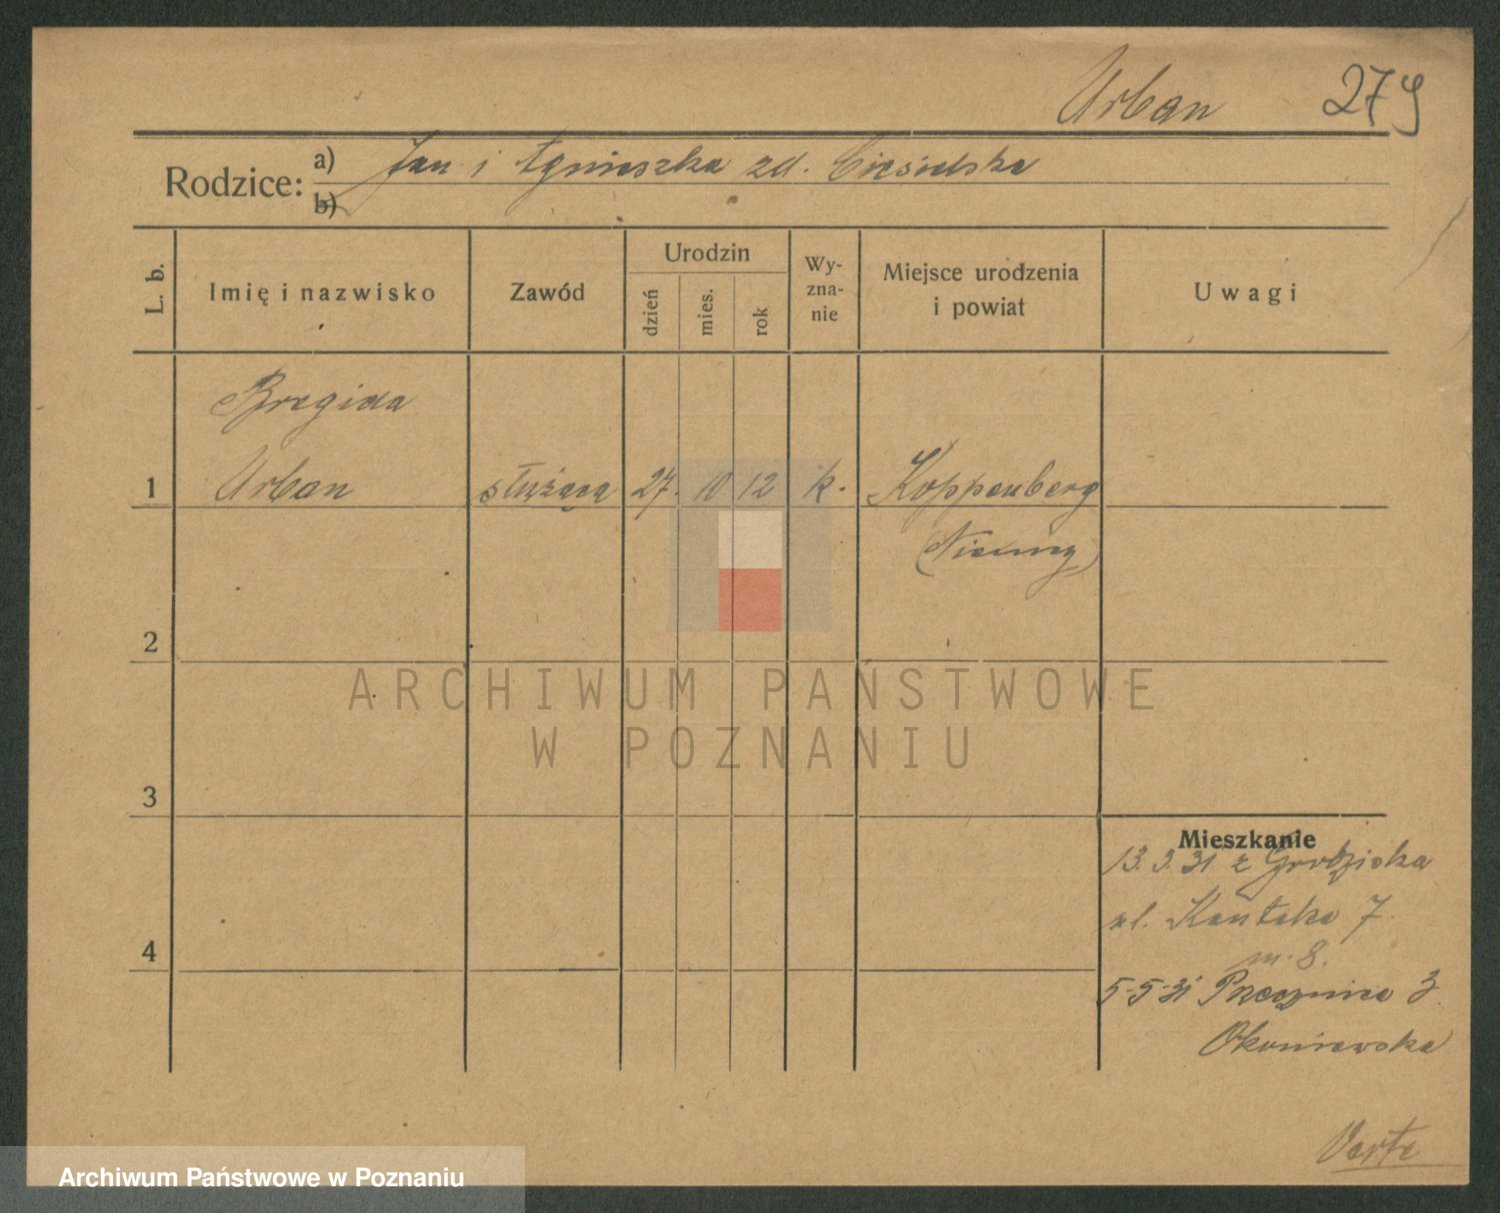 Urban 279
Rodzice: a) Jan i Agnieszka zd. Ciesielska
b)
L. b. Imię i nazwisko Zawód Urodzin dzień mies. rok Wy-zna-nie Miejsce urodzenia i powiat Uwagi
Brygida
1 Urban służąca 27. 10 12 k. Koppenberg
(Niemcy)
2
ARCHIWUM PAŃSTWOWE
W POZNANIU
3
Mieszkanie
13.3.31 z Grodziska
ul. Kantaka 7
m. 8.
4
5-5-31 Przecznica 3.
Okoniewska
Verte
Archiwum Państwowe w Poznaniu